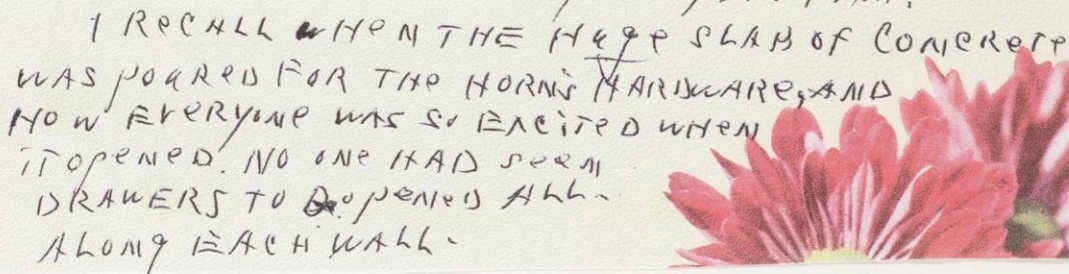 I RECALL WHEN THE HUGE SLAB OF CONCRETE
WAS POURED FOR THE HORN'S HARDWARE, AND
HOW EVERYONE WAS SO EXCITED WHEN
IT OPENED. NO ONE HAD SEEN
DRAWERS TO OPENED ALL
ALONG EACH WALL.